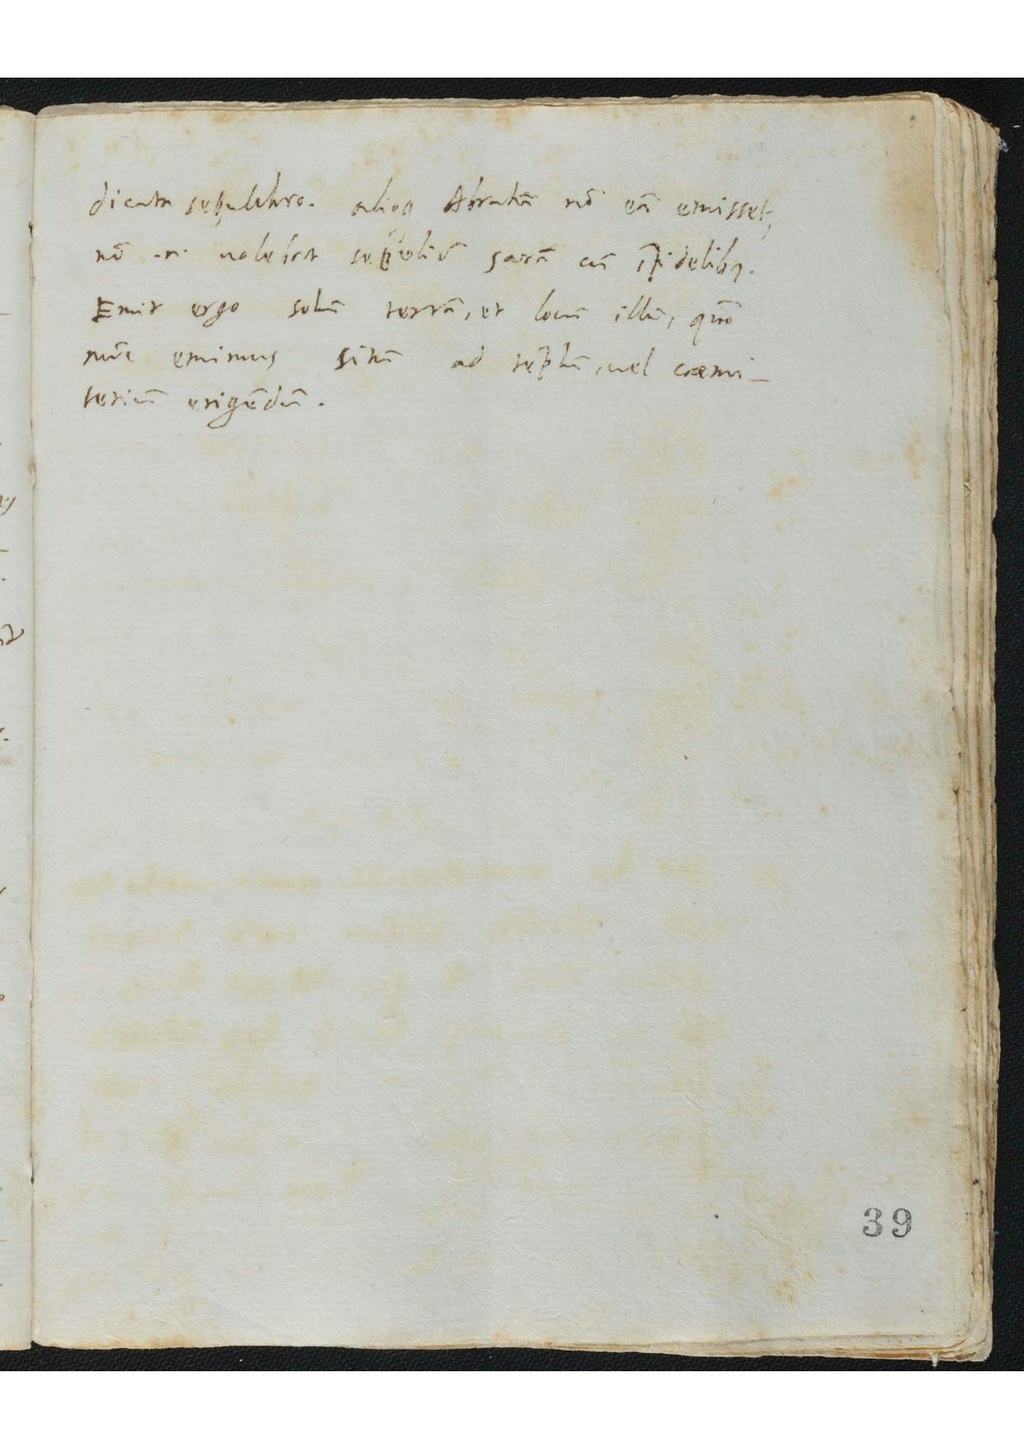 dicata sepulchro. alioq Abrahā nō eā emisset,
nō .n. volebat sepeliri sarā cū īfidelibq.
Emit ergo solū terrā, et locū illū, quō
nūc emimus sitū ad tēplū, vel coemi-
teriū erigēdū.
39